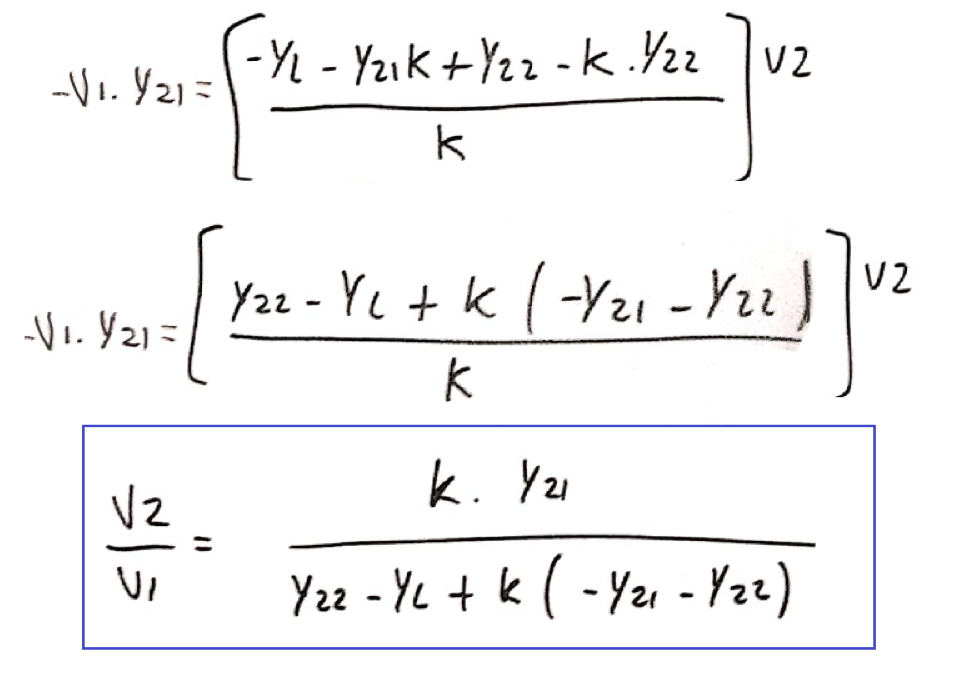 -V1. Y21 = [ (-YL - Y21K + Y22 - K . Y22) / K ] V2
-V1. Y21 = [ (Y22 - YL + K (-Y21 - Y22)) / K ] V2
V2 / V1 = K . Y21 / (Y22 - YL + K (-Y21 - Y22))